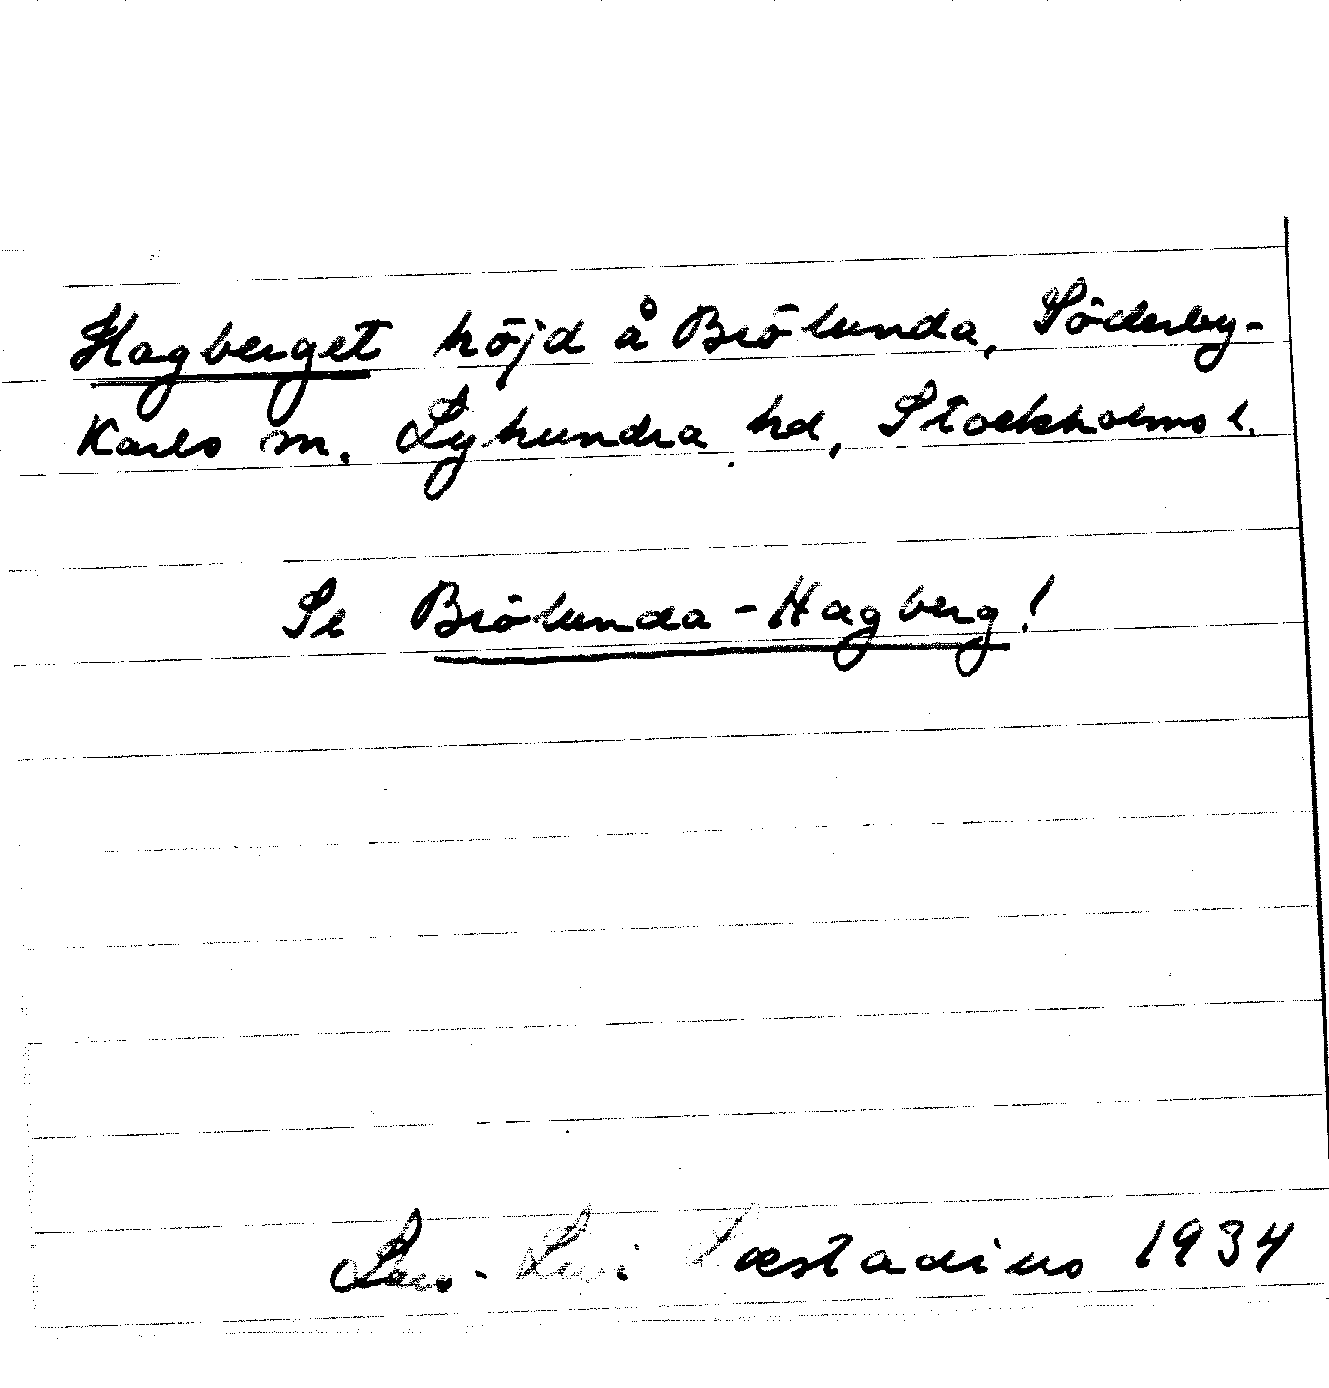 Hagberget höjd å Brölunda, Söderby-
Karls sn. Lyhundra hd, Stockholms l.
Se Brölunda-Hagberg!
Lars-Levi Læstadius 1934